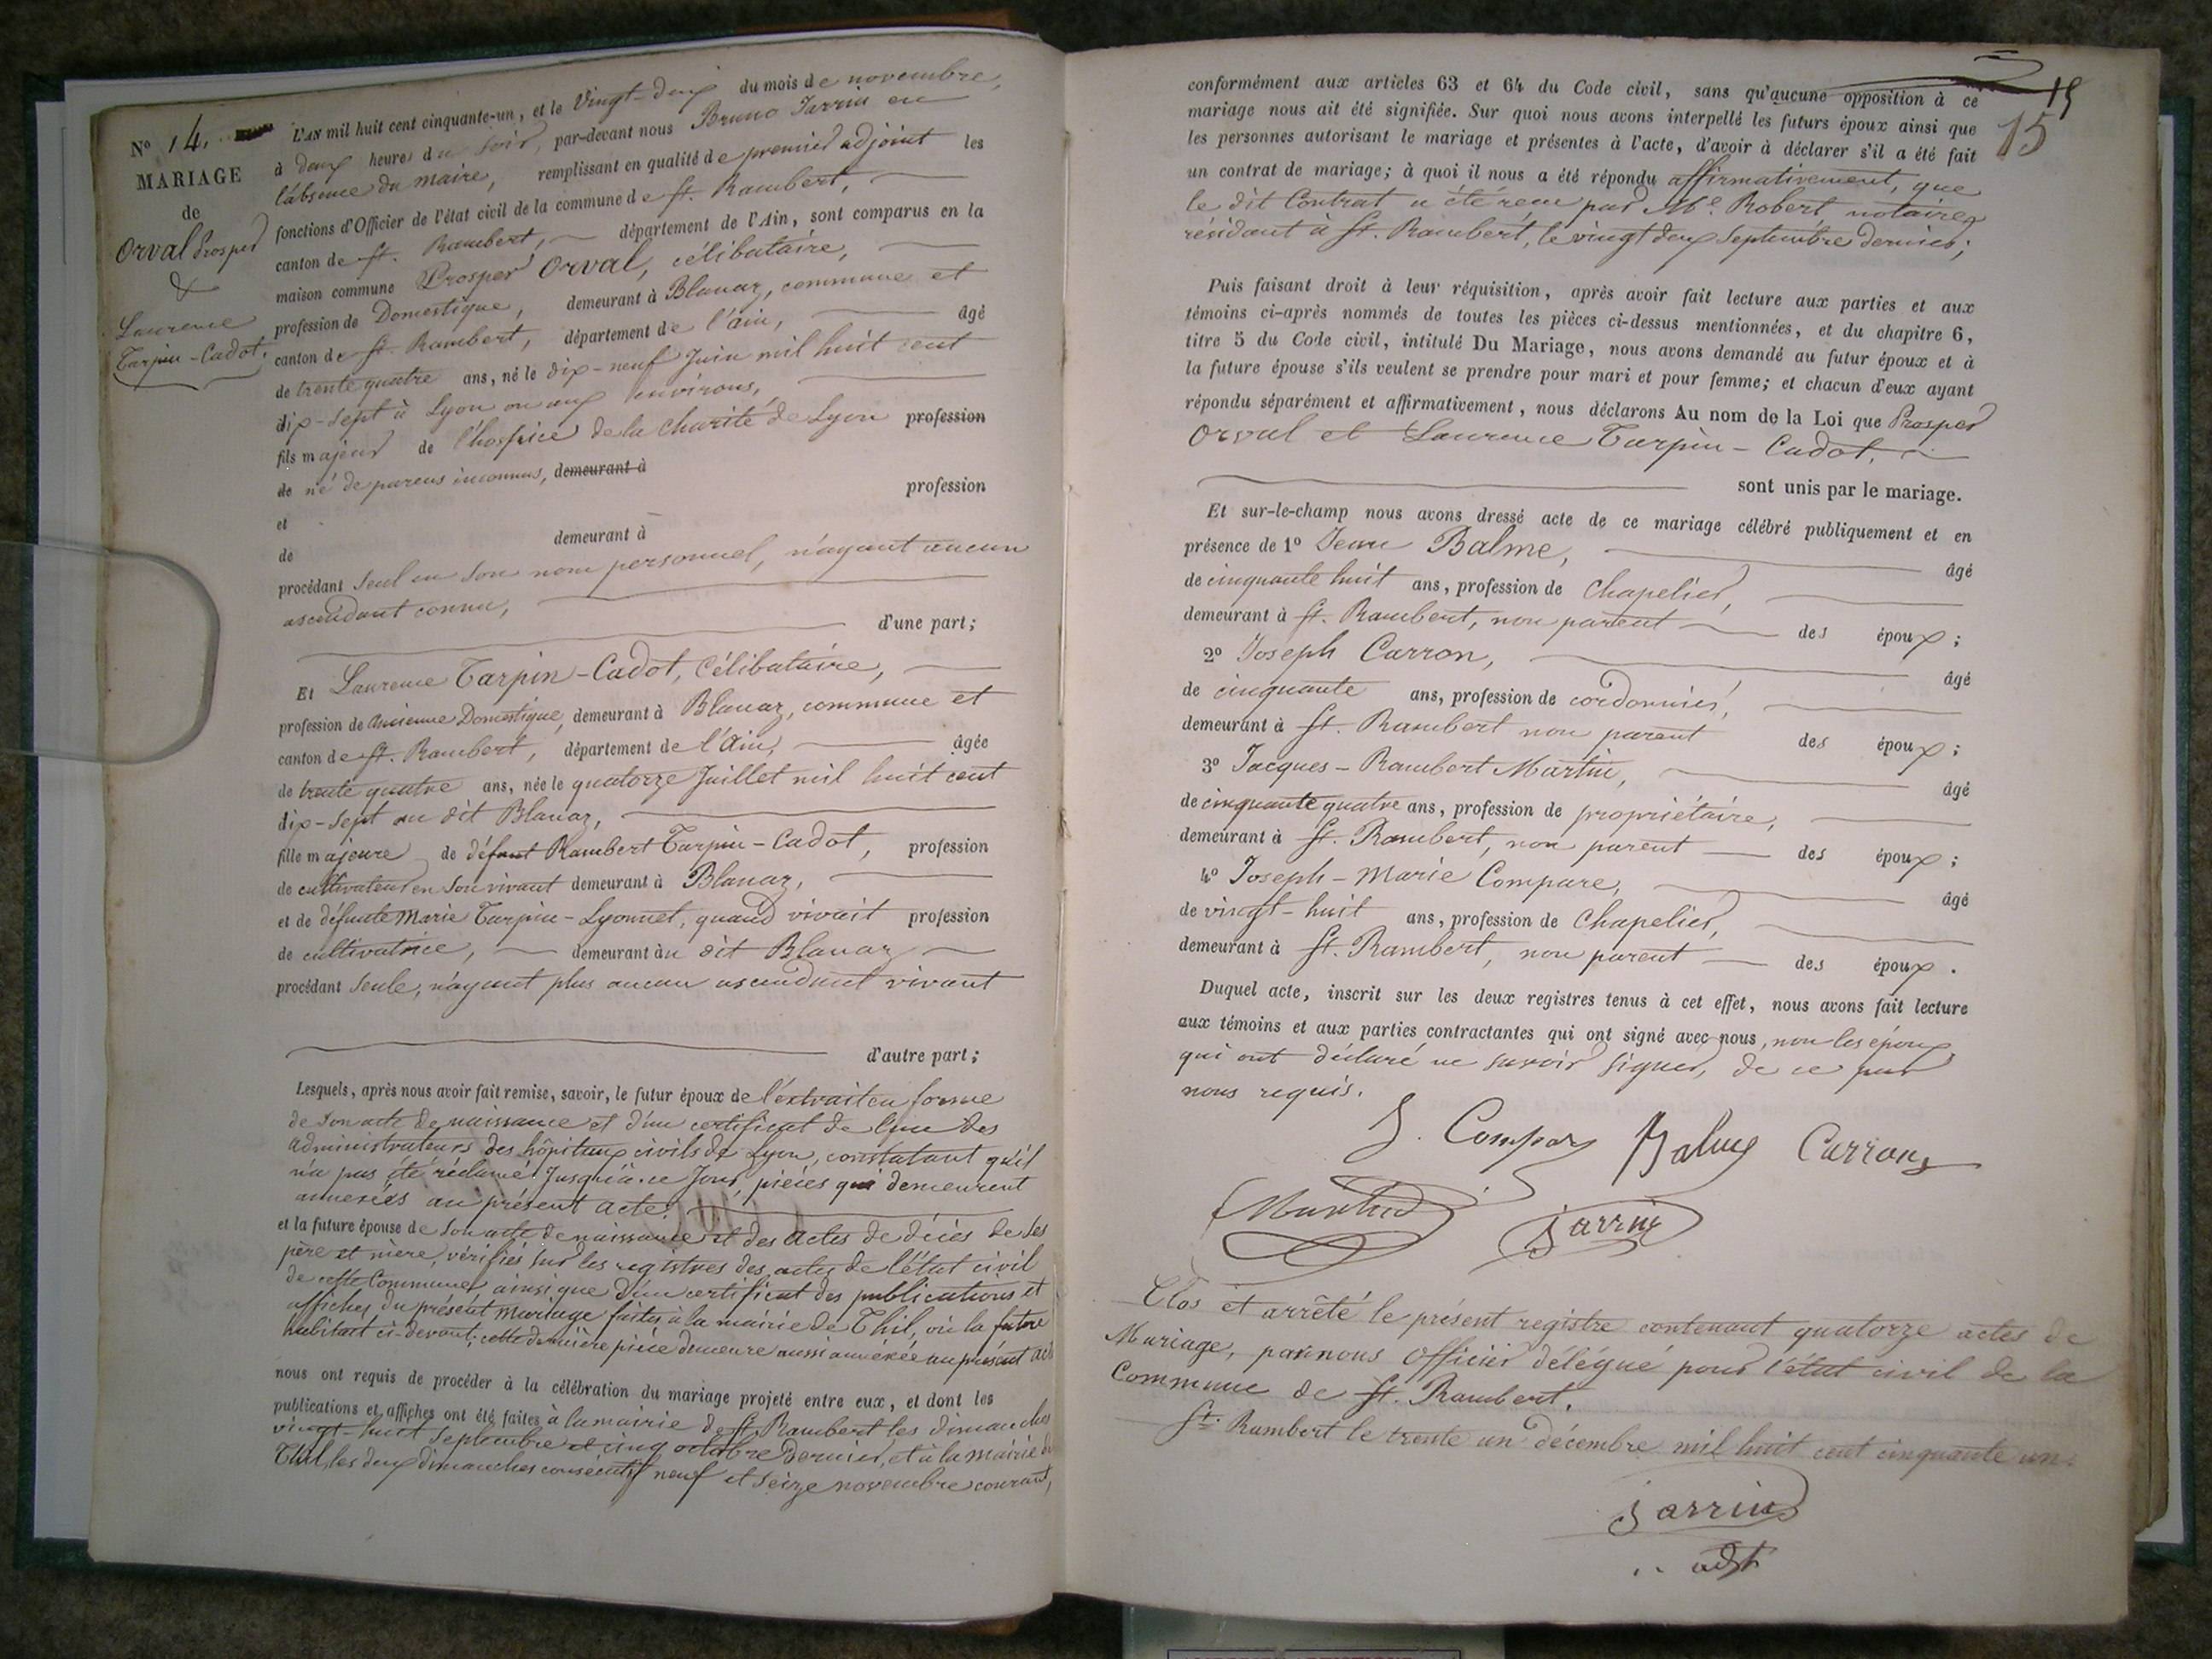 N° 14.
MARIAGE
de
Orval Prosper
&
Laurence
Tarpin-Cadot.
L'AN mil huit cent cinquante-un, et le Vingt-deux du mois de novembre,
à deux heures du soir, par-devant nous Bruno Jarrin en
l'absence du maire, remplissant en qualité de premier adjoint les
fonctions d'Officier de l'état civil de la commune de St. Rambert,
canton de St. Rambert, département de l'Ain, sont comparus en la
maison commune Prosper Orval, célibataire,
profession de Domestique, demeurant à Blanaz, commune et
canton de St. Rambert, département de l'ain, âgé
de trente quatre ans, né le dix-neuf Juin mil huit cent
dix-sept à Lyon ou aux environs,
fils majeur de l'hospice de la Charité de Lyon profession
de né de parens inconnus, demeurant à
profession
et
de demeurant à
procédant seul en son nom personnel, n'ayant aucun
ascendant connu,
d'une part;
Et Laurence Tarpin-Cadot, Célibataire,
profession de Ancienne Domestique, demeurant à Blanaz, commune et
canton de St. Rambert, département de l'Ain, âgée
de trente quatre ans, née le quatorze Juillet mil huit cent
dix-sept au dit Blanaz,
fille majeure de défunt Rambert Tarpin-Cadot, profession
de cultivateur en son vivant demeurant à Blanaz,
et de défunte Marie Tarpin-Lyonnet, quand vivait profession
de cultivatrice, demeurant au dit Blanaz
procédant seule, n'ayant plus aucun ascendant vivant
d'autre part;
Lesquels, après nous avoir fait remise, savoir, le futur époux de l'extrait en forme
de son acte de naissance et d'un certificat de l'un des
administrateurs des hôpitaux civils de Lyon, constatant qu'il
n'a pas été réclamé jusqu'à ce jour, pièces qui demeurent
annexées au présent acte.
et la future épouse de son acte de naissance et des actes de décès de ses
père et mère, vérifiés sur les registres des actes de l'état civil
de cette Commune, ainsi que d'un certificat des publications et
affiches du présent mariage faites à la mairie de Thil, où la future
habitait ci-devant; cette dernière pièce demeure aussi annexée au présent acte
nous ont requis de procéder à la célébration du mariage projeté entre eux, et dont les
publications et affiches ont été faites à la mairie de St. Rambert les dimanches
vingt-huit septembre et cinq octobre dernier, et à la mairie de
Thil, les deux dimanches consécutifs neuf et seize novembre courant,
15
15
conformément aux articles 63 et 64 du Code civil, sans qu'aucune opposition à ce
mariage nous ait été signifiée. Sur quoi nous avons interpellé les futurs époux ainsi que
les personnes autorisant le mariage et présentes à l'acte, d'avoir à déclarer s'il a été fait
un contrat de mariage; à quoi il nous a été répondu affirmativement, que
le dit Contrat a été reçu par Me. Robert, notaire
résidant à St. Rambert, le vingt deux septembre dernier;
Puis faisant droit à leur réquisition, après avoir fait lecture aux parties et aux
témoins ci-après nommés de toutes les pièces ci-dessus mentionnées, et du chapitre 6,
titre 5 du Code civil, intitulé Du Mariage, nous avons demandé au futur époux et à
la future épouse s'ils veulent se prendre pour mari et pour femme; et chacun d'eux ayant
répondu séparément et affirmativement, nous déclarons Au nom de la Loi que Prosper
Orval et Laurence Tarpin-Cadot.
sont unis par le mariage.
Et sur-le-champ nous avons dressé acte de ce mariage célébré publiquement et en
présence de 1° Jean Balme, âgé
de cinquante huit ans, profession de Chapelier,
demeurant à St. Rambert, non parent des époux;
2° Joseph Carron, âgé
de cinquante ans, profession de cordonnier,
demeurant à St. Rambert non parent des époux;
3° Jacques-Rambert Martin, âgé
de cinquante quatre ans, profession de propriétaire,
demeurant à St. Rambert, non parent des époux;
4° Joseph-Marie Compare, âgé
de vingt-huit ans, profession de Chapelier,
demeurant à St. Rambert, non parent des époux.
Duquel acte, inscrit sur les deux registres tenus à cet effet, nous avons fait lecture
aux témoins et aux parties contractantes qui ont signé avec nous, non les époux
qui ont déclaré ne savoir signer, de ce par
nous requis.
J. Compar Balme Carron
Martin Jarrin
Clos et arrêté le présent registre contenant quatorze actes de
Mariage, par nous Officier délégué pour l'état civil de la
Commune de St. Rambert.
St. Rambert le trente un décembre mil huit cent cinquante un.
Jarrin
adjt